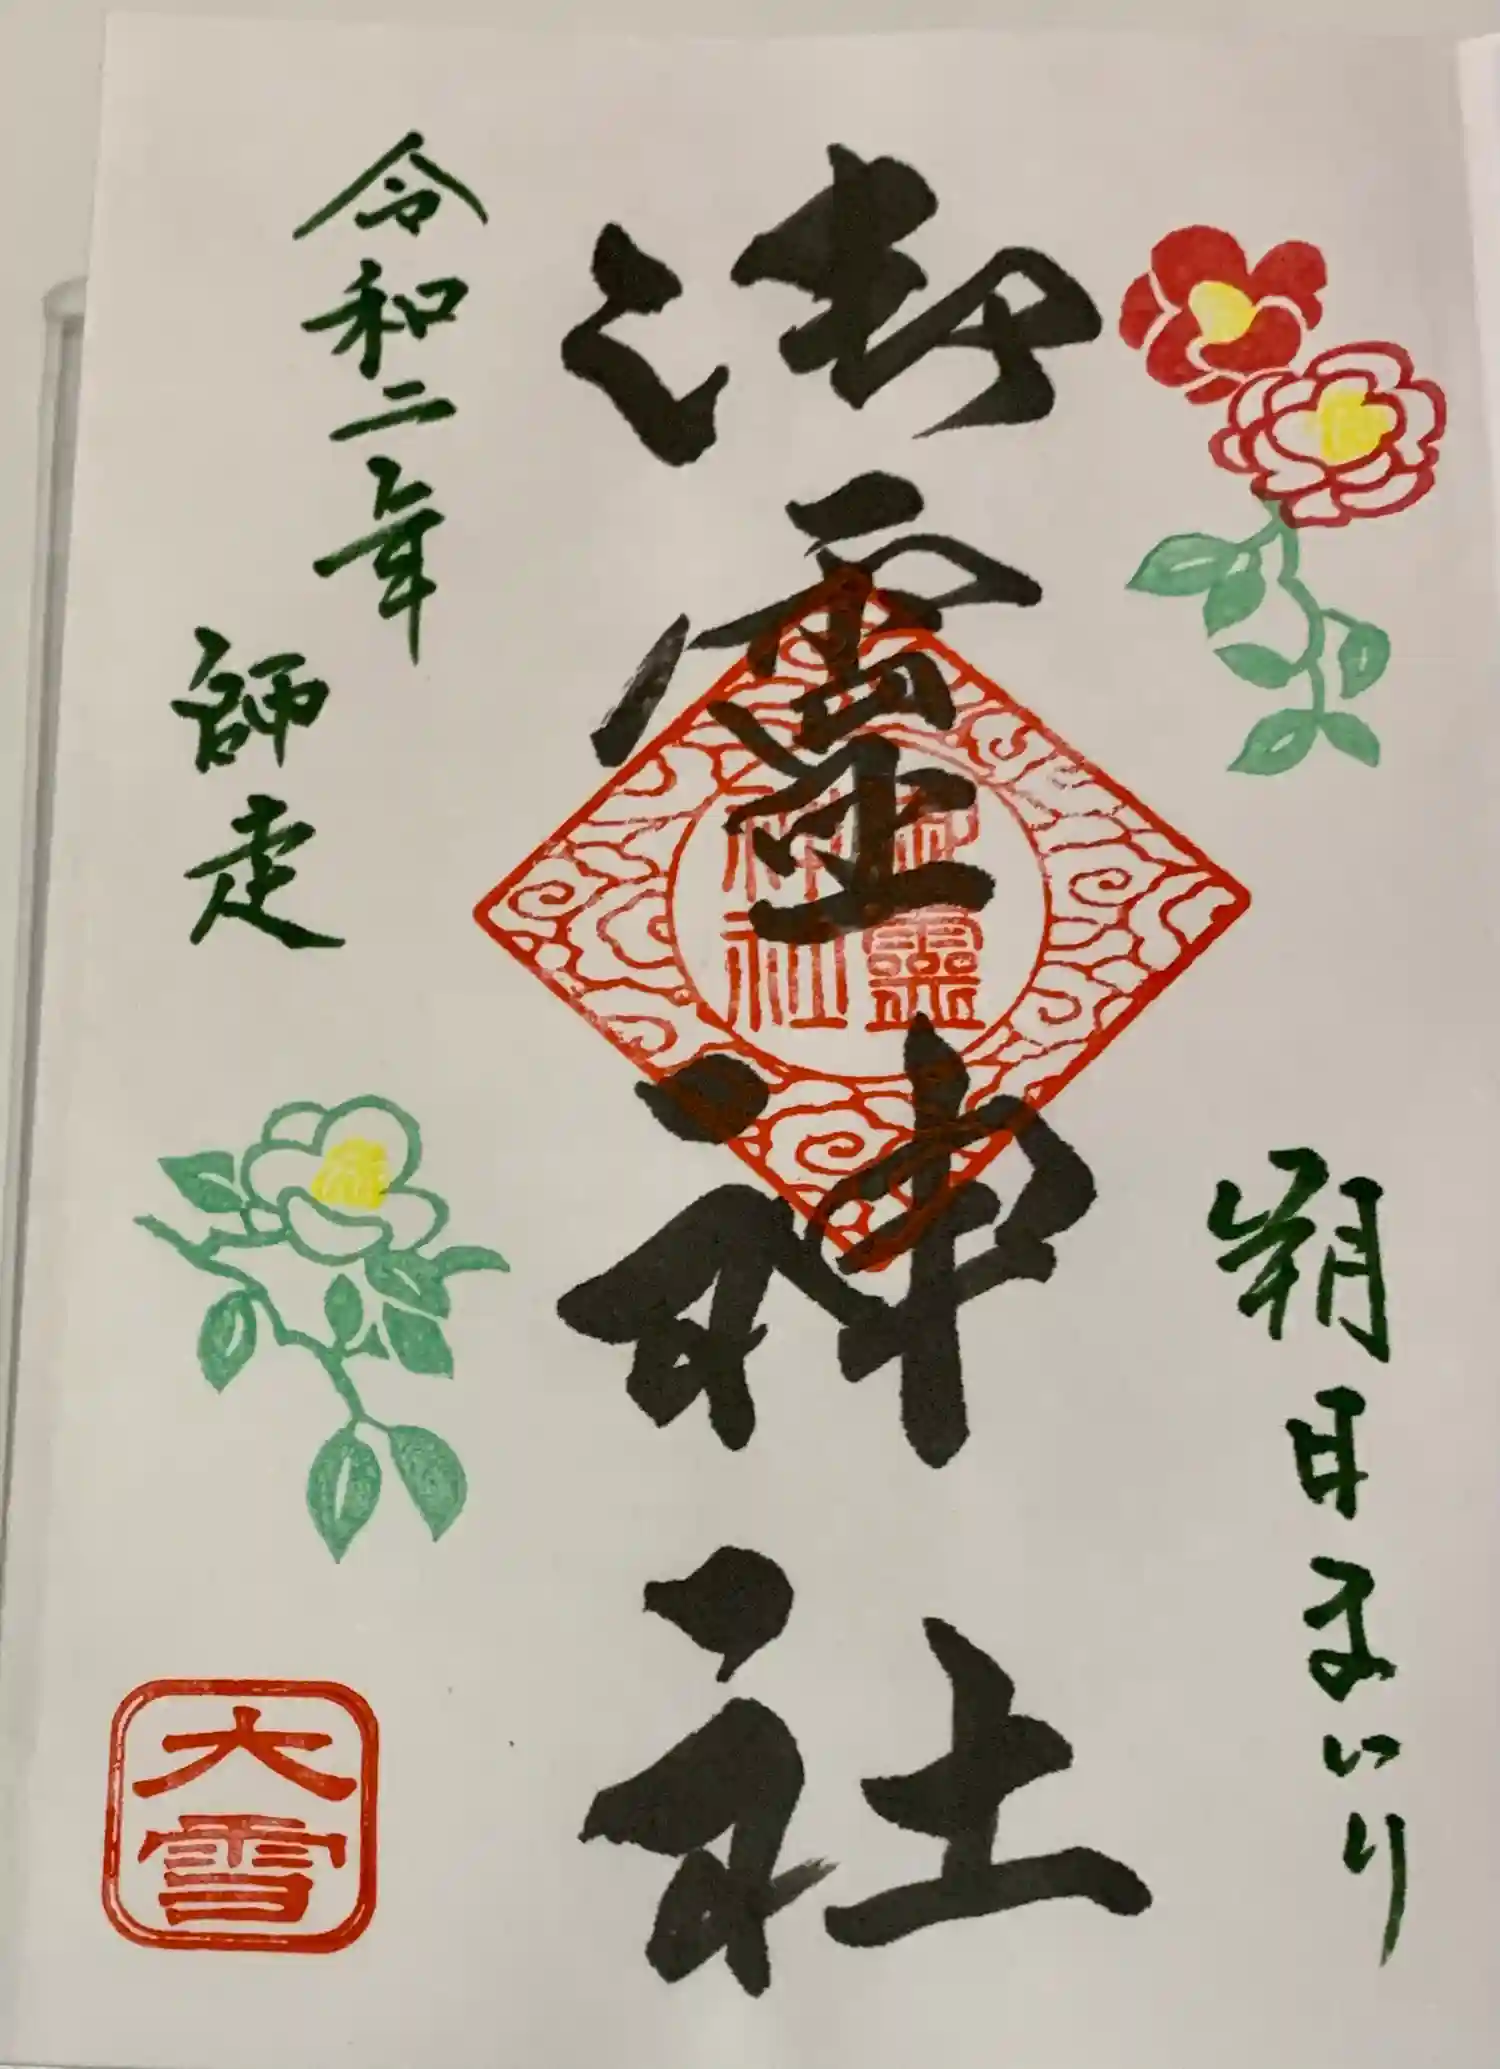 朔日まいり
御霊神社
御靈神社
令和二年
師走
大雪